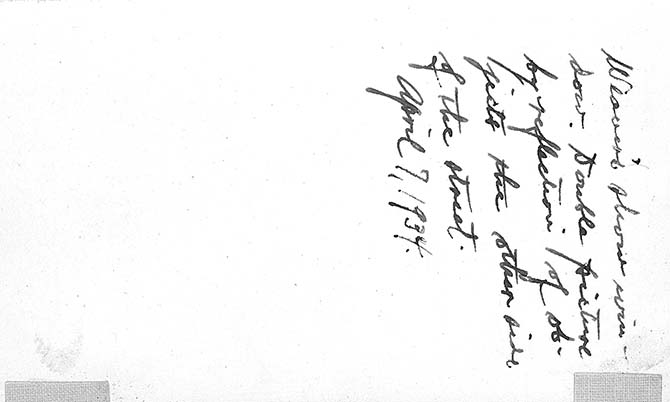 Weaver's show win-
dow. Double picture
by reflection of ob-
jects the other side
of the street.
April 7, 1934.